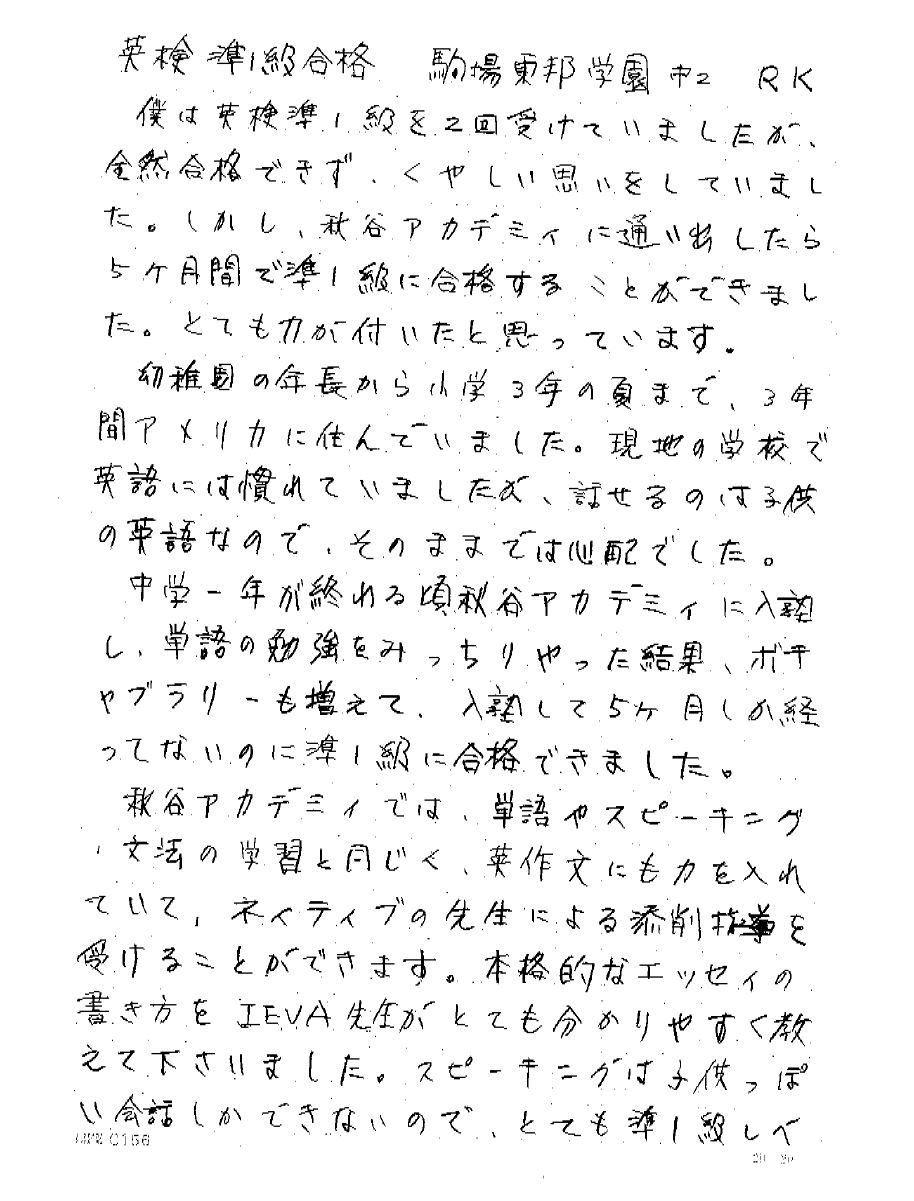 英検準1級合格　駒場東邦学園中2　RK
僕は英検準1級を2回受けていましたが、
全然合格できず、くやしい思いをしていまし
た。しかし、秋谷アカデミィに通い出したら
5ヶ月間で準1級に合格することができまし
た。とても力が付いたと思っています。
幼稚園の年長から小学3年の頃まで、3年
間アメリカに住んでいました。現地の学校で
英語には慣れていましたが、話せるのは子供
の英語なので、そのままでは心配でした。
中学一年が終わる頃秋谷アカデミィに入塾
し、単語の勉強をみっちりやった結果、ボキ
ャブラリーも増えて、入塾して5ヶ月しか経
ってないのに準1級に合格できました。
秋谷アカデミィでは、単語やスピーキング
・文法の学習と同じく、英作文にも力を入れ
ていて、ネイティブの先生による添削指導を
受けることができます。本格的なエッセイの
書き方をIEVA先生がとても分かりやすく教
えて下さいました。スピーキングは子供っぽ
い会話しかできないので、とても準1級レベ
LIFE C156
20 20